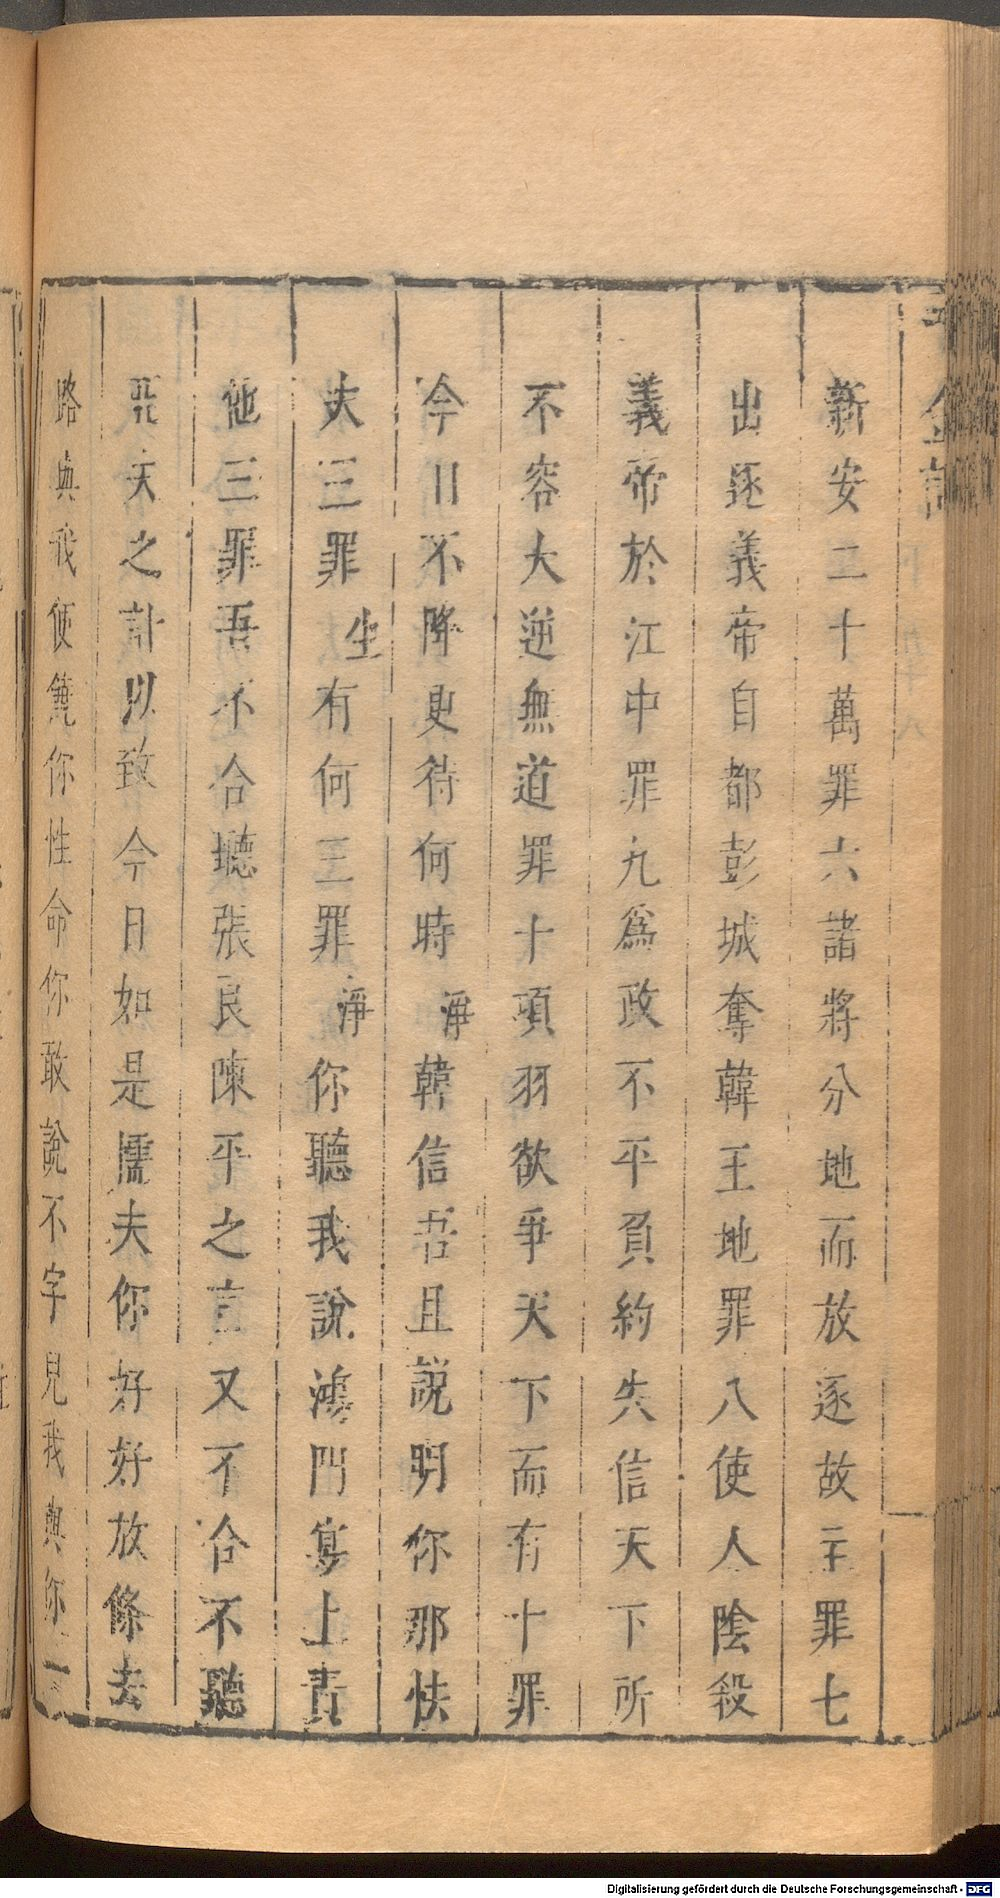 新安二十萬罪六諸將分地而放逐故主罪七
出逐義帝自都彭城奪韓王地罪八使人陰殺
義帝於江中罪九爲政不平負約失信天下所
不容大逆無道罪十項羽欲爭天下而有十罪
今日不降更待何時 淨韓信吾且説明你那怯
夫三罪 生有何三罪 淨你聽我說鴻門宴上責
他三罪吾不合聽張良陳平之言又不合不聽
之計以致今日如是懦夫你好好放條去
路與我便饒你性命你敢說不字兒我與你一
Digitalisierung gefördert durch die Deutsche Forschungsgemeinschaft - DFG